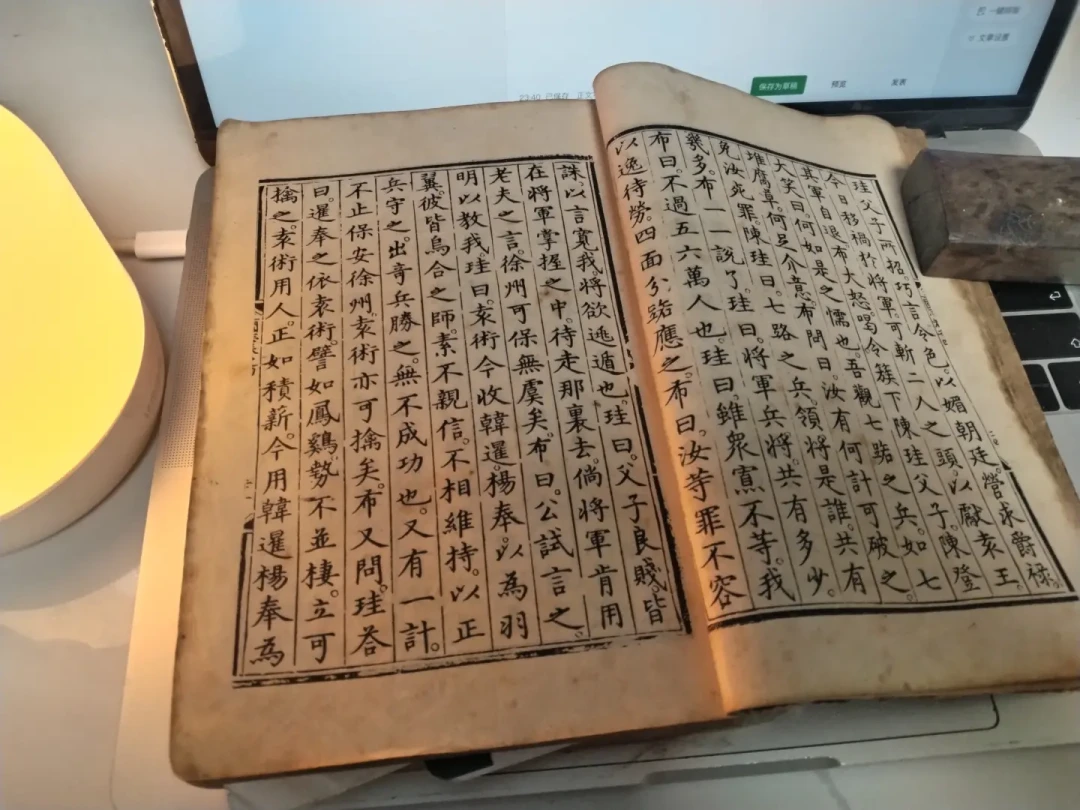 文章设置
23:40 已保存
保存为草稿 预览 发表
珪父子所招巧言令色。以媚朝廷。營求爵祿。
今日移禍於將軍。可斬二人之頭。以獻袁王。
其軍自退。布大怒。喝令簇下陳珪父子。陳登
大笑曰。何如是之懦也。吾觀七路之兵。如七
堆腐草。何足介意。布問曰。汝有何計可破之。
免汝死罪。陳珪曰。七路之兵。領將是誰。共有
幾多。布一一說了。珪曰。將軍兵將共有多少。
布曰。不過五六萬人也。珪曰。雖衆寡不等。我
以逸待勞。四面分路應之。布曰。汝等罪不容
誅。以言寬我。將欲逃遁也。珪曰。父子良賤。皆
在將軍掌握之中。待走那裏去。倘將軍肯用
老夫之言。徐州可保無虞矣。布曰。公試言之。
明以教我。珪曰。袁術今收韓暹。楊奉。以為羽
翼。彼皆烏合之師。素不親信。不相維持。以正
兵守之。出奇兵勝之。無不成功也。又有一計。
不止保安徐州。袁術亦可擒矣。布又問。珪答
曰。暹奉之依袁術。譬如鳳鷄。勢不並棲。立可
擒之。袁術用人。正如積新。今用韓暹楊奉為